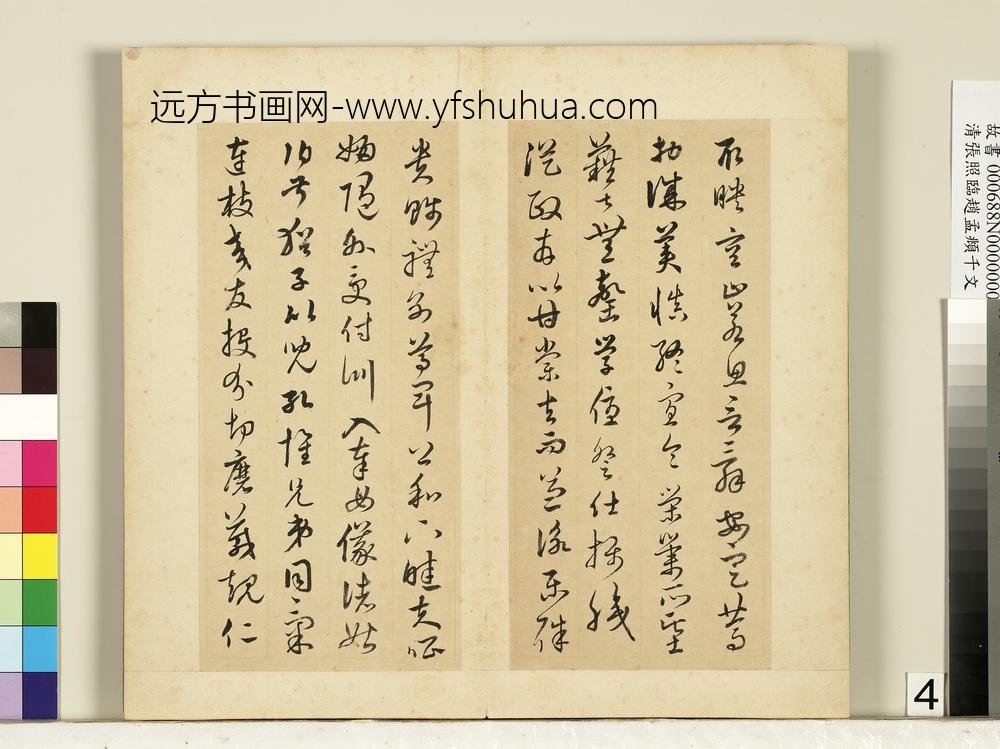 远方书画网-www.yfshuhua.com
取映容止若思言辭安定篤
初誠美慎終宜令榮業所基
藉甚無竟學優登仕攝職
從政存以甘棠去而益詠樂殊
貴賤禮別尊卑上和下睦夫唱
婦隨外受傅訓入奉母儀諸姑
伯叔猶子比兒孔懷兄弟同氣
連枝交友投分切磨箴規仁
故書000688N0000000
清張照臨趙孟頫千文
4